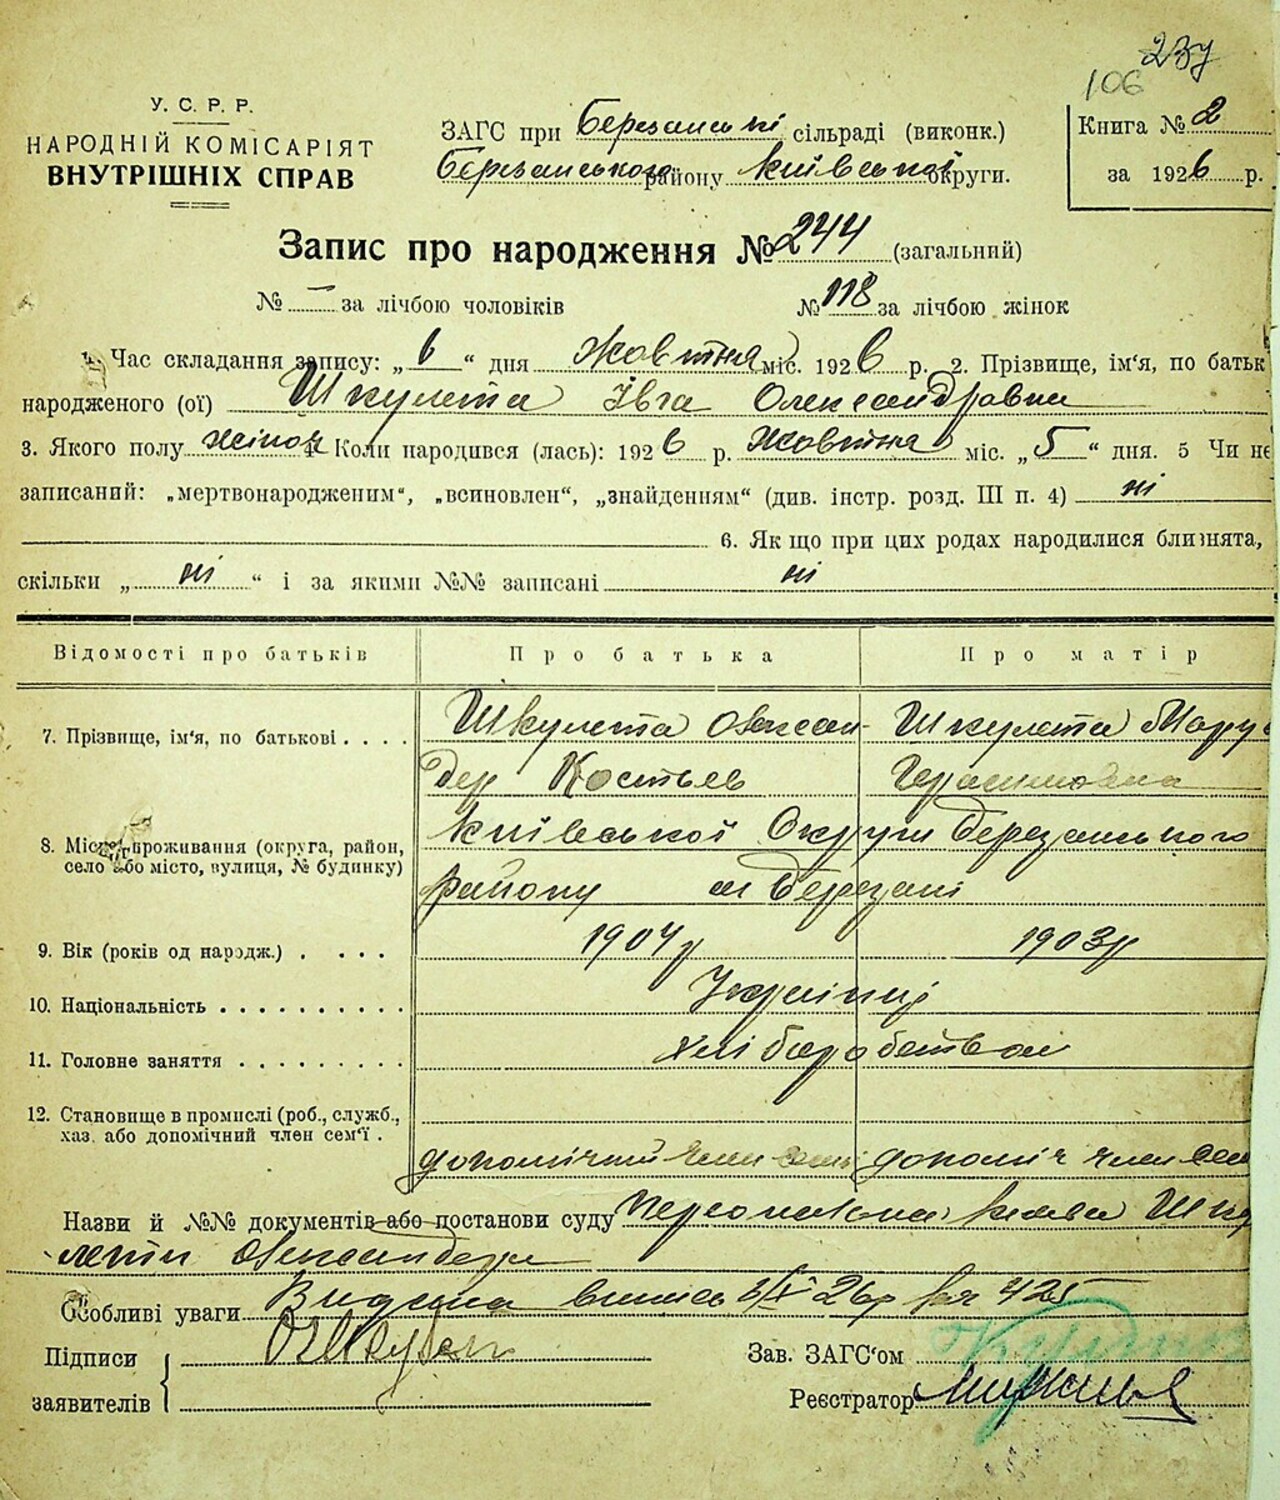 237
106
У. С. Р. Р.
НАРОДНІЙ КОМІСАРІЯТ
ВНУТРІШНІХ СПРАВ
ЗАГС при Березанські сільраді (виконк.)
Березанського району Київської округи.
Книга № 2
за 1926 р.
Запис про народження № 244 (загальний)
№ — за лічбою чоловіків № 118 за лічбою жінок
1. Час складання запису: „6“ дня Жовтня міс. 1926 р. 2. Прізвище, ім‘я, по батьк
народженого (ої) Шкулета Івга Олександровна
3. Якого полу жінок 4. Коли народився (лась): 1926 р. Жовтня міс. „5“ дня. 5 Чи не
записаний: „мертвонародженим“, „всиновлен“, „знайденням“ (див. інстр. розд. III п. 4) ні
6. Як що при цих родах народилися близнята,
скільки „ні“ і за якими №№ записані ні
Відомості про батьків Про батька Про матір
7. Прізвище, ім‘я, по батькові . . . . Шкулета Олексан- Шкулета Мару
дер Костьев Герасимовна
8. Місце проживання (округа, район, село або місто, вулиця, № будинку) Київської Округи Березанського
району м Березані
9. Вік (років од народж.) . . . . 1904 р 1903 р
10. Національність . . . . . . . . . . Українці
11. Головне заняття . . . . . . . . . Хліборобством
12. Становище в промислі (роб., служб.,
хаз. або допомічний член сем‘ї .
допомічний член семі допоміч член сем
Назви й №№ документів або постанови суду Персональна заява Шку
лети Олександера
Особливі уваги Видана випись 6/X 26р за № 425
Підписи
заявителів
Зав. ЗАГС‘ом
Реєстратор